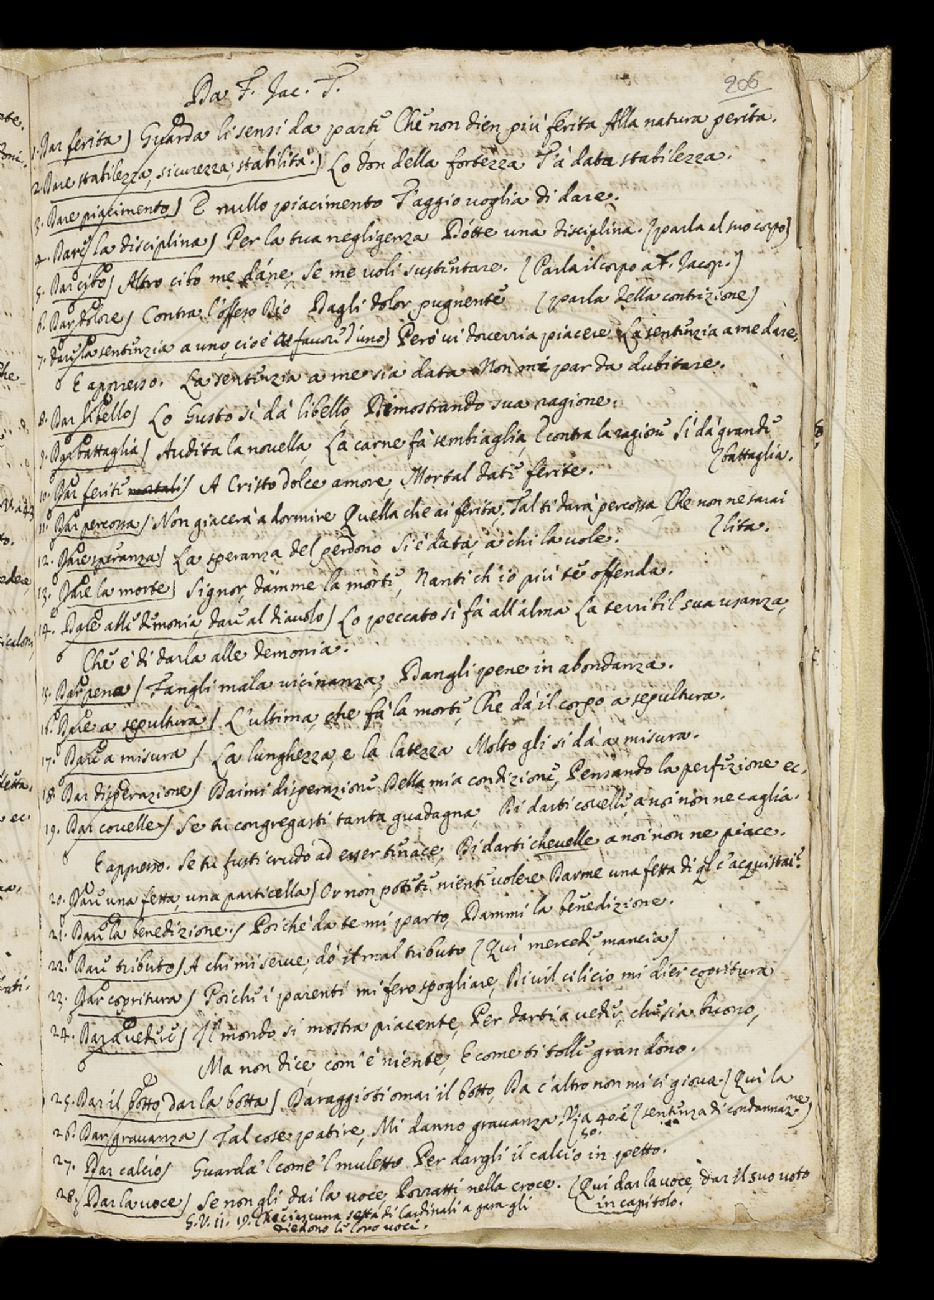 Da F. Jac. T.
206
1. Dar ferita) Guarda li sensi da parte Che non dien più ferita Alla natura perita.
2. Dare stabilezza, sicurezza, stabilità.) Lo don della fortezza T'à data stabilezza.
3. Dare piacimento) E nullo piacimento T'aggio voglia di dare.
4. Dare la disciplina) Per la tua negligenza Dotte una disciplina. (parla al suo corpo)
5. Dar cibo) Altro cibo me dáne, Se me voli sustentare. (Parla il corpo a F. Jacop.)
6. Dar dolore) Contra l'offeso Dio Dagli dolor pugnente (parla della contrizione)
7. Dare la sentenzia a uno, cioè al favore d'uno) Però vi doverria piacere La sentenzia a me dare.
E appresso. La sentenzia a me sia data Non mi par da dubitare.
8. Dar libello) Lo Gusto si dà libello Dimostrando sua ragione.
9. Dar battaglia) Audita la novella La carne fa sembiaglia, E contra la ragione Si dà grande
battaglia.
10. Dar ferite mortali) A Cristo dolce amore, Mortal date ferite.
11. Dar percossa) Non giacerà a dormire Quella che ai ferita, Tal ti darà percossa, Che non ne sarai
lita.
12. Dare speranza) La speranza del perdono Si è data, a chi la vole.
13. Dare la morte) Signor, damme la morte, Nanti ch'io più te offenda.
14. Dare alle demonia, dare al diavolo) Lo peccato sì fa all'alma La terribil sua usanza,
Che è di darla alle demonia.
15. Dar pena) Fangli mala vicinanza, Dangli pene in abondanza.
16. Dare a sepultura) L'ultima, che fa la morte, Che dà il corpo a sepultura.
17. Dare a misura) La lunghezza, e la latezza Molto gli si dà a misura.
18. Dar disperazione) Daimi disperazione Della mia condizione, Pensando la perfezione ec.
19. Dar covelle) Se tu congregasti tanta guadagna, Di darti covelle a noi non ne caglia.
E appresso. Se tu fusti crudo ad esser tenace, Di darti chevelle a noi non ne piace.
20. Dare una fetta, una particella) Or non potete niente volere Darme una fetta di ql c'acquistai?
21. Dare la benedizione.) Poichè da te mi parto, Dammi la benedizione.
22. Dare tributo) A chi mi serve, dò il mal tributo (Qui mercede, mancia)
23. Dar copritura) Poichè i parenti mi fero spogliare, Di vil cilicio mi dier copritura
24. Dar a vedere) Il mondo si mostra piacente, Per darti a vedere, che sia buono,
Ma non dice, com'è niente, E come ti tolle gran dono.
25. Dar il botto, dar la botta) Daraggioti omai il botto, Da c'altro non mi ci giova) (Qui la
sentenza di condannazne)
26. Dar gravanza) Tal cose patire, Mi danno gravanza.
27. Dar calcio) Guarda 'l come 'l muletto Per dargli il calcio in petto.
28. Dar la voce) Se non gli dai la voce, Porratti nella croce. (Qui dar la voce, dar il suo voto
in capitolo.
G.V. 11. 19. Che ciascuna setta di Cardinali a gara gli
diedono le loro voci.